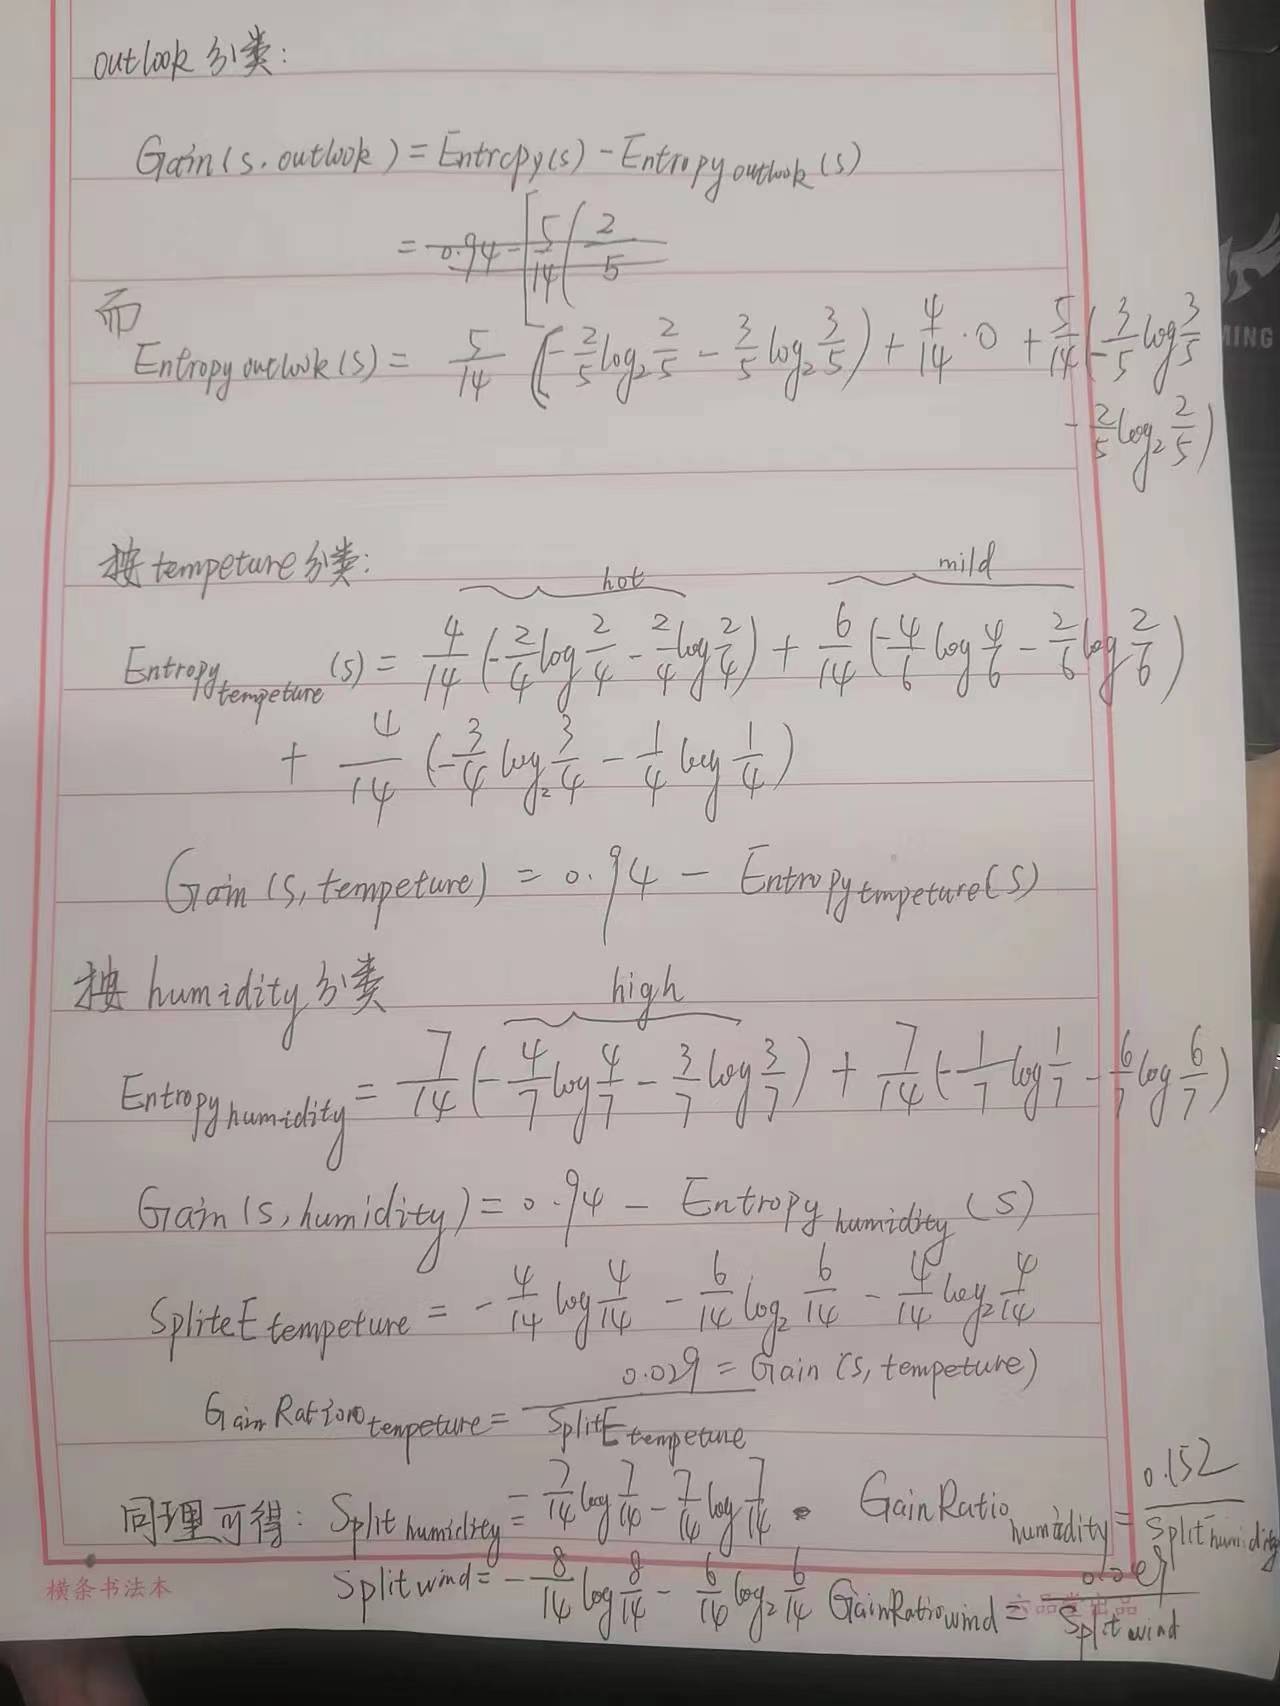 outlook 分类:
Gain(s, outlook) = Entropy(s) - Entropy outlook (s)
= 0.94 - [5/14 ( 2/5
而
Entropy outlook(s) = 5/14 (-2/5 log₂ 2/5 - 3/5 log₂ 3/5) + 4/14 · 0 + 5/14 (-3/5 log 3/5
- 2/5 log₂ 2/5)
按 tempeture 分类:
hot mild
Entropy tempeture (s) = 4/14 (-2/4 log 2/4 - 2/4 log 2/4) + 6/14 (-4/6 log 4/6 - 2/6 log 2/6)
+ 4/14 (-3/4 log₂ 3/4 - 1/4 log 1/4)
Gain (s, tempeture) = 0.94 - Entropy tmpeture(s)
按 humidity 分类
high
Entropy humidity = 7/14 (-4/7 log 4/7 - 3/7 log 3/7) + 7/14 (-1/7 log 1/7 - 6/7 log 6/7)
Gain (s, humidity) = 0.94 - Entropy humidity (s)
SpliteE tempeture = -4/14 log 4/14 - 6/14 log₂ 6/14 - 4/14 log₂ 4/14
0.029 = Gain (s, tempeture)
Gain Ration tempeture =
SplitE tempeture
同理可得: Split humidity = -7/14 log 7/14 - 7/14 log 7/14 . GainRatio humidity = 0.152 / Split humidity
Split wind = -8/14 log 8/14 - 6/14 log₂ 6/14 GainRatio wind = / Split wind
横条书法本
六品堂出品
MING